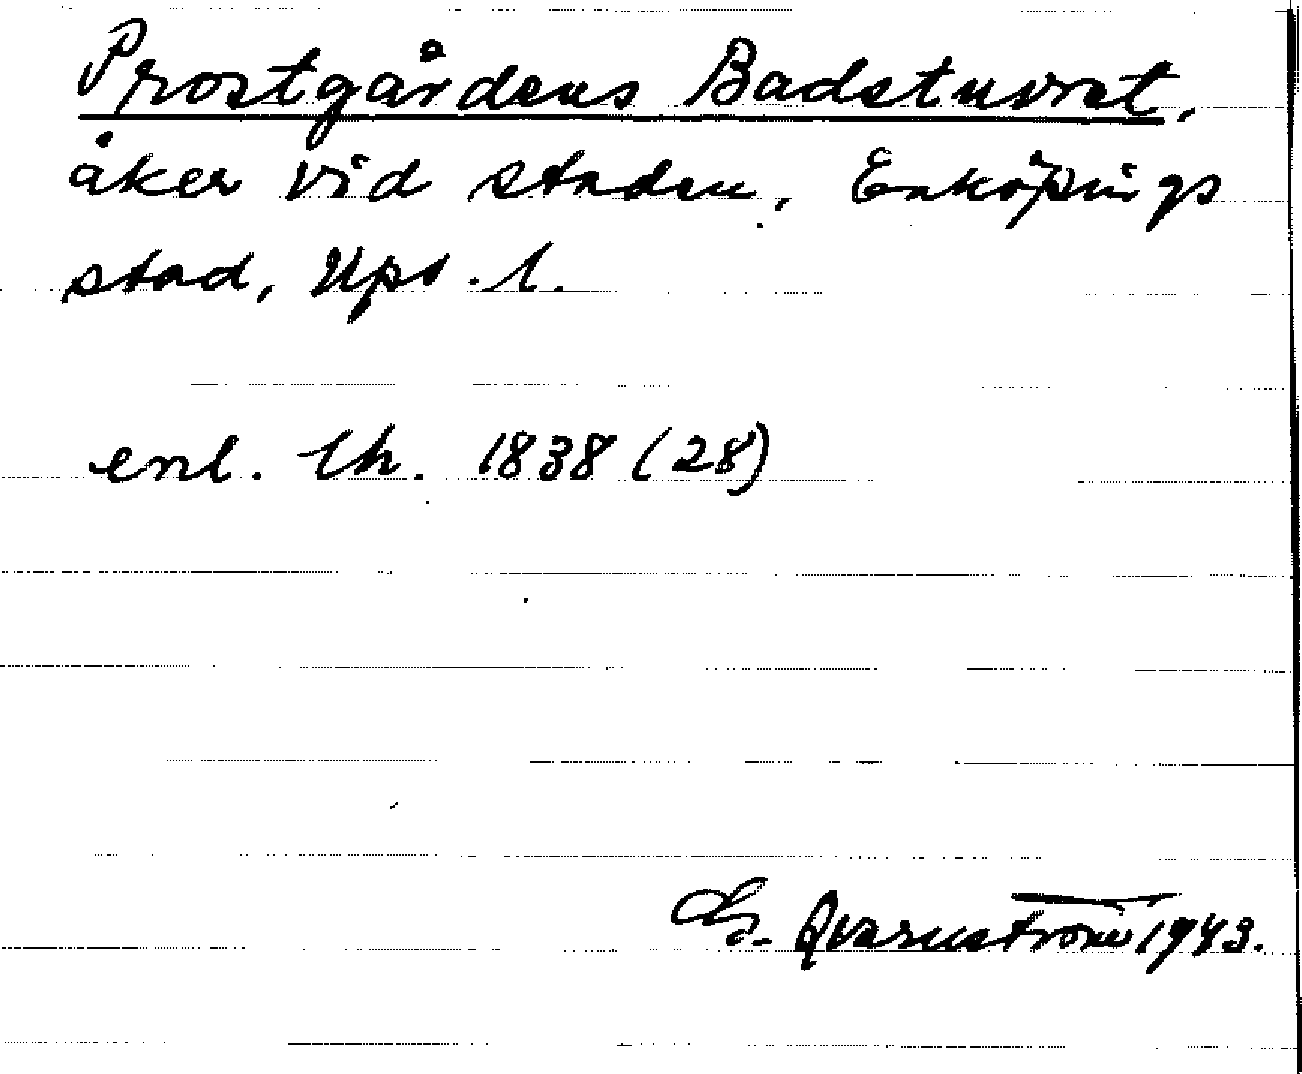 Prostgårdens Badstuvret,
åker vid staden, Enköpings
stad, Ups. l.
enl. lh. 1838 (28)
G. Qvarnström 1943.